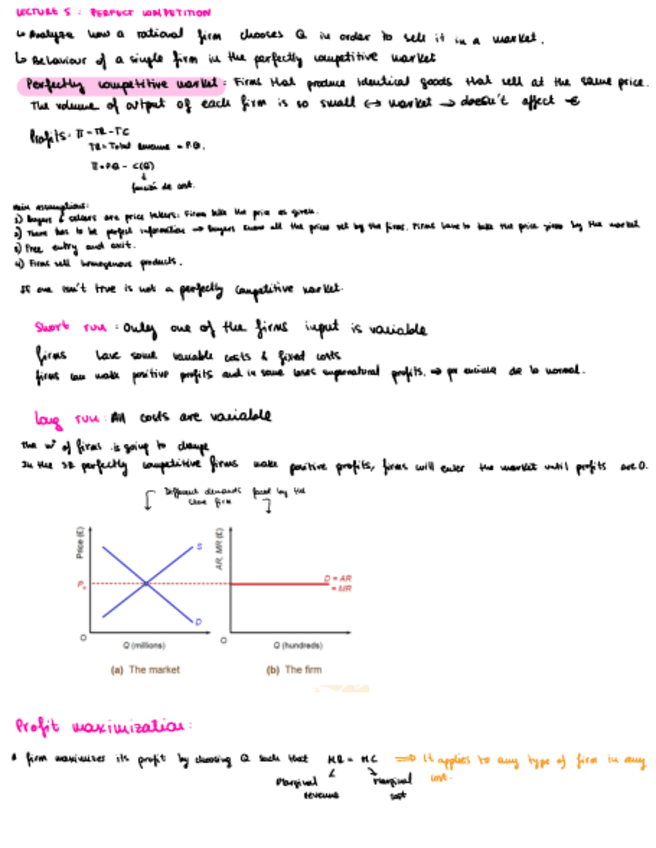 LECTURE 5 : PERFECT COMPETITION
↳ Analyze how a rational firm chooses Q in order to sell it in a market.
↳ Behaviour of a single firm in the perfectly competitive market
Perfectly competitive market : Firms that produce identical goods that sell at the same price.
The volume of output of each firm is so small ↔ market → doesn't affect
Profits: π = TR - TC
TR = Total Revenue = P·Q.
π = P·Q - C(Q)
↓
función de cost.
Main assumptions:
1) Buyers & sellers are price takers: Firms take the price as given.
2) There has to be perfect information → Buyers know all the prices set by the firms. Firms have to take the price given by the market
3) Free entry and exit.
4) Firms sell homogenous products.
If one isn't true is not a perfectly competitive market.
Short run : Only one of the firms input is variable
firms have some variable costs & fixed costs
firms can make positive profits and in some cases supernatural profits. ⇒ por encima de lo normal.
Long run : All costs are variable
The nº of firms is going to change
In the SR perfectly competitive firms make positive profits, firms will enter the market until profits are 0.
Different demands faced by the
firm
Price (£)
S
Pe
D
O
Q (millions)
(a) The market
AR, MR (£)
D = AR
= MR
O
Q (hundreds)
(b) The firm
Profit maximization:
A firm maximizes its profit by choosing Q such that MR = MC ⇒ It applies to any type of firm in any
Marginal revenue
Marginal cost